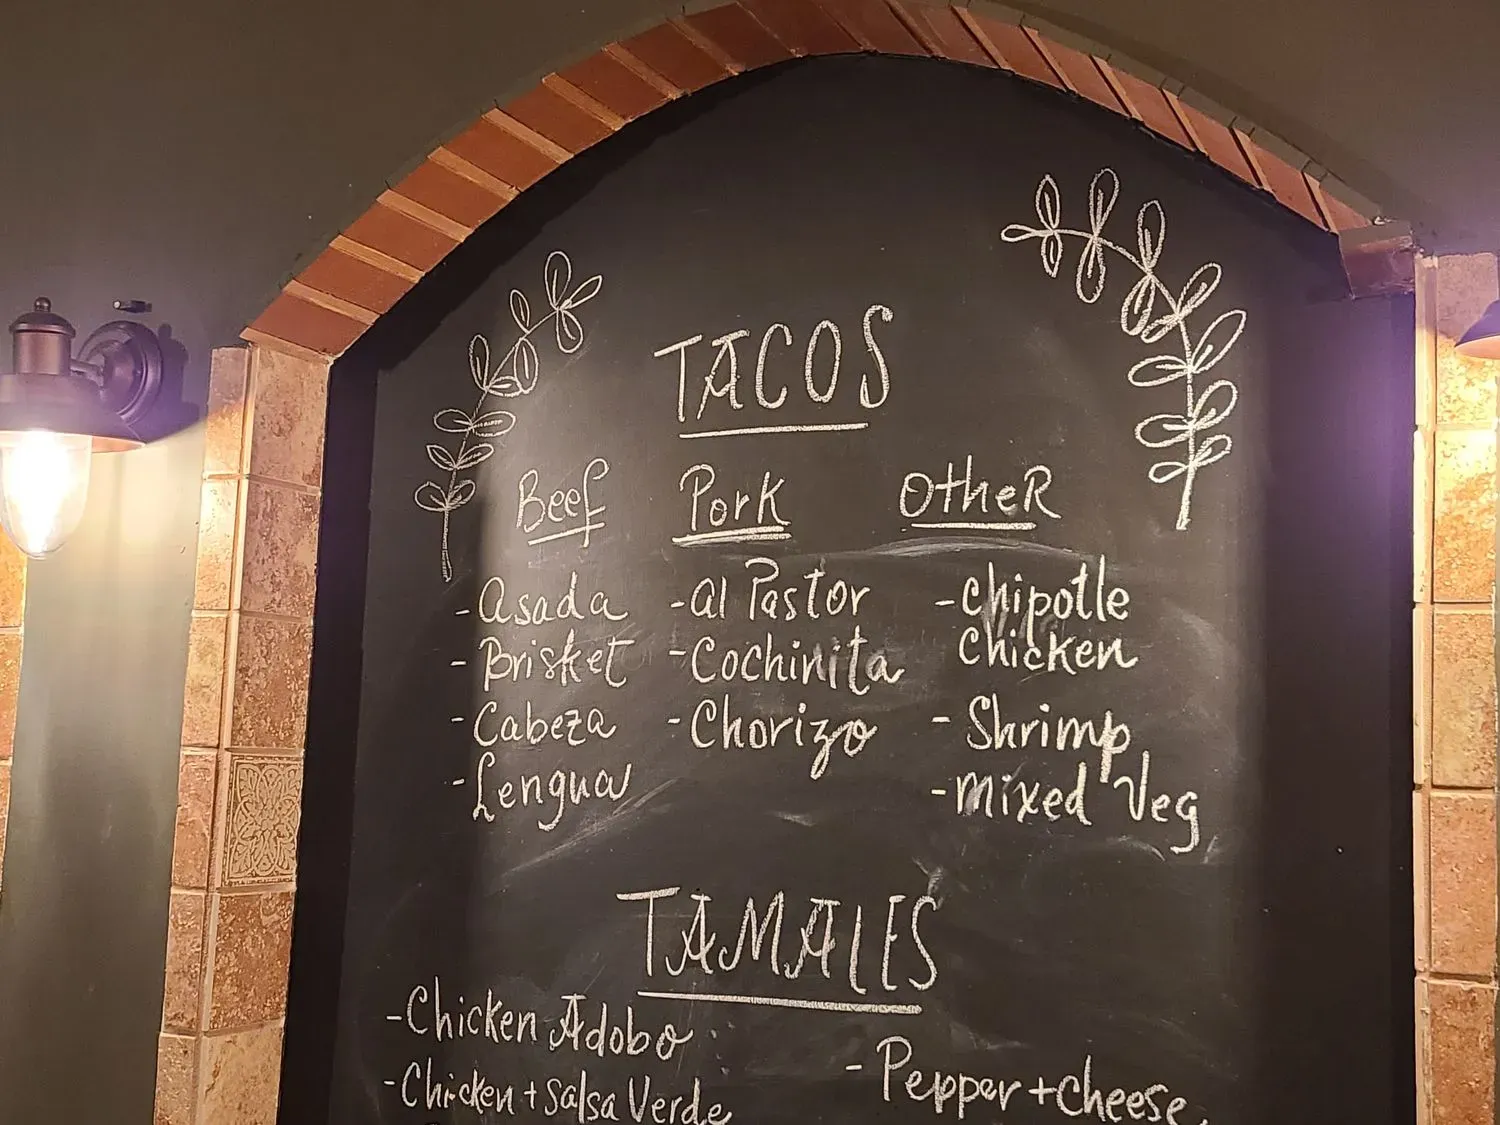 TACOS
Beef
- Asada
- Brisket
- Cabeza
- Lengua
Pork
- Al Pastor
- Cochinita
- Chorizo
OtheR
- Chipotle
Chicken
- Shrimp
- Mixed Veg
TAMALES
- Chicken Adobo
- Chicken + Salsa Verde
- Pepper + Cheese